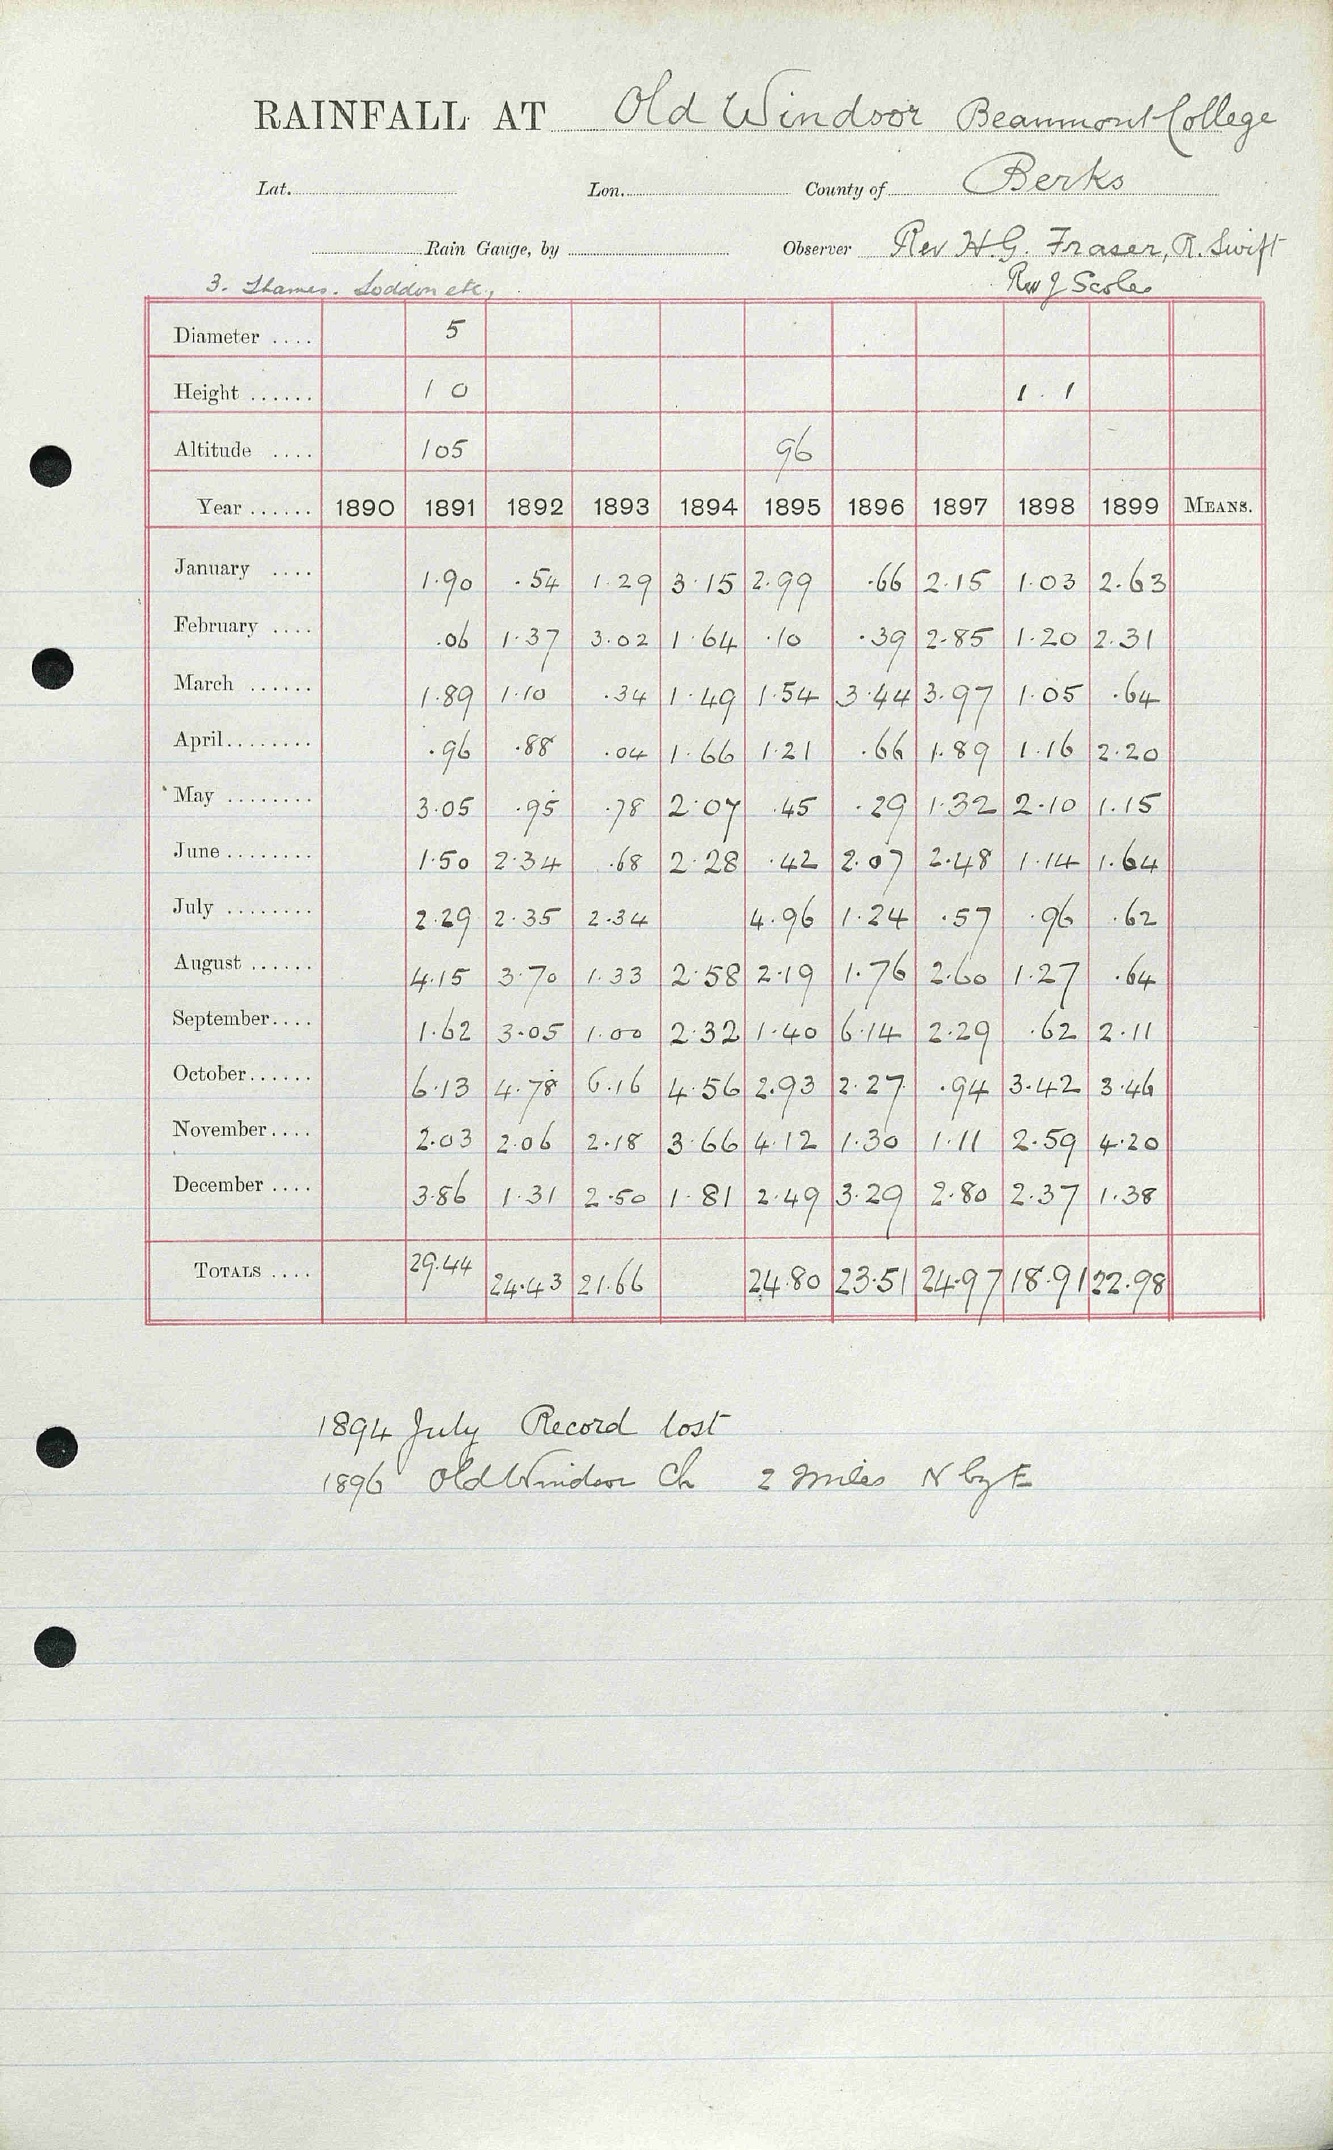 RAINFALL AT Old Windsor Beaumont College
Lat. Lon. County of Berks
Rain Gauge, by Observer Rev H.G. Fraser, R. Swift
3. Thames. Loddon etc, Rev J Scoles
Diameter .... 5
Height ...... 1 0 1 . 1
Altitude .... 105 96
Year ...... 1890 1891 1892 1893 1894 1895 1896 1897 1898 1899 MEANS.
January .... 1.90 .54 1.29 3.15 2.99 .66 2.15 1.03 2.63
February .... .06 1.37 3.02 1.64 .10 .39 2.85 1.20 2.31
March ...... 1.89 1.10 .34 1.49 1.54 3.44 3.97 1.05 .64
April........ .96 .88 .04 1.66 1.21 .66 1.89 1.16 2.20
May ........ 3.05 .95 .78 2.07 .45 .29 1.32 2.10 1.15
June ........ 1.50 2.34 .68 2.28 .42 2.07 2.48 1.14 1.64
July ........ 2.29 2.35 2.34 4.96 1.24 .57 .96 .62
August ...... 4.15 3.70 1.33 2.58 2.19 1.76 2.60 1.27 .64
September.... 1.62 3.05 1.00 2.32 1.40 6.14 2.29 .62 2.11
October...... 6.13 4.78 6.16 4.56 2.93 2.27 .94 3.42 3.46
November.... 2.03 2.06 2.18 3.66 4.12 1.30 1.11 2.59 4.20
December .... 3.86 1.31 2.50 1.81 2.49 3.29 2.80 2.37 1.38
TOTALS .... 29.44 24.43 21.66 24.80 23.51 24.97 18.91 22.98
1894 July Record lost
1896 Old Windsor Ch 2 miles N by E